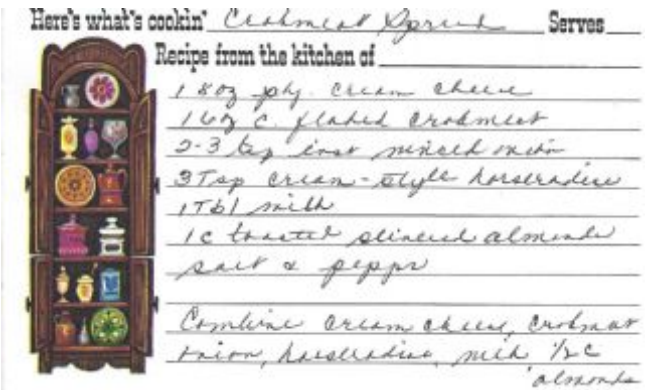 Here's what's cookin' Crabmeat Spread Serves
Recipe from the kitchen of
1 8oz pkg. cream cheese
1 6oz c. flaked crabmeat
2-3 tsp inst minced onion
3 Tsp cream-style horseradish
1 Tbl milk
1 c toasted slivered almonds
salt & pepper
Combine cream cheese, crabmeat
onion, horseradish, milk 1/2 c
almonds